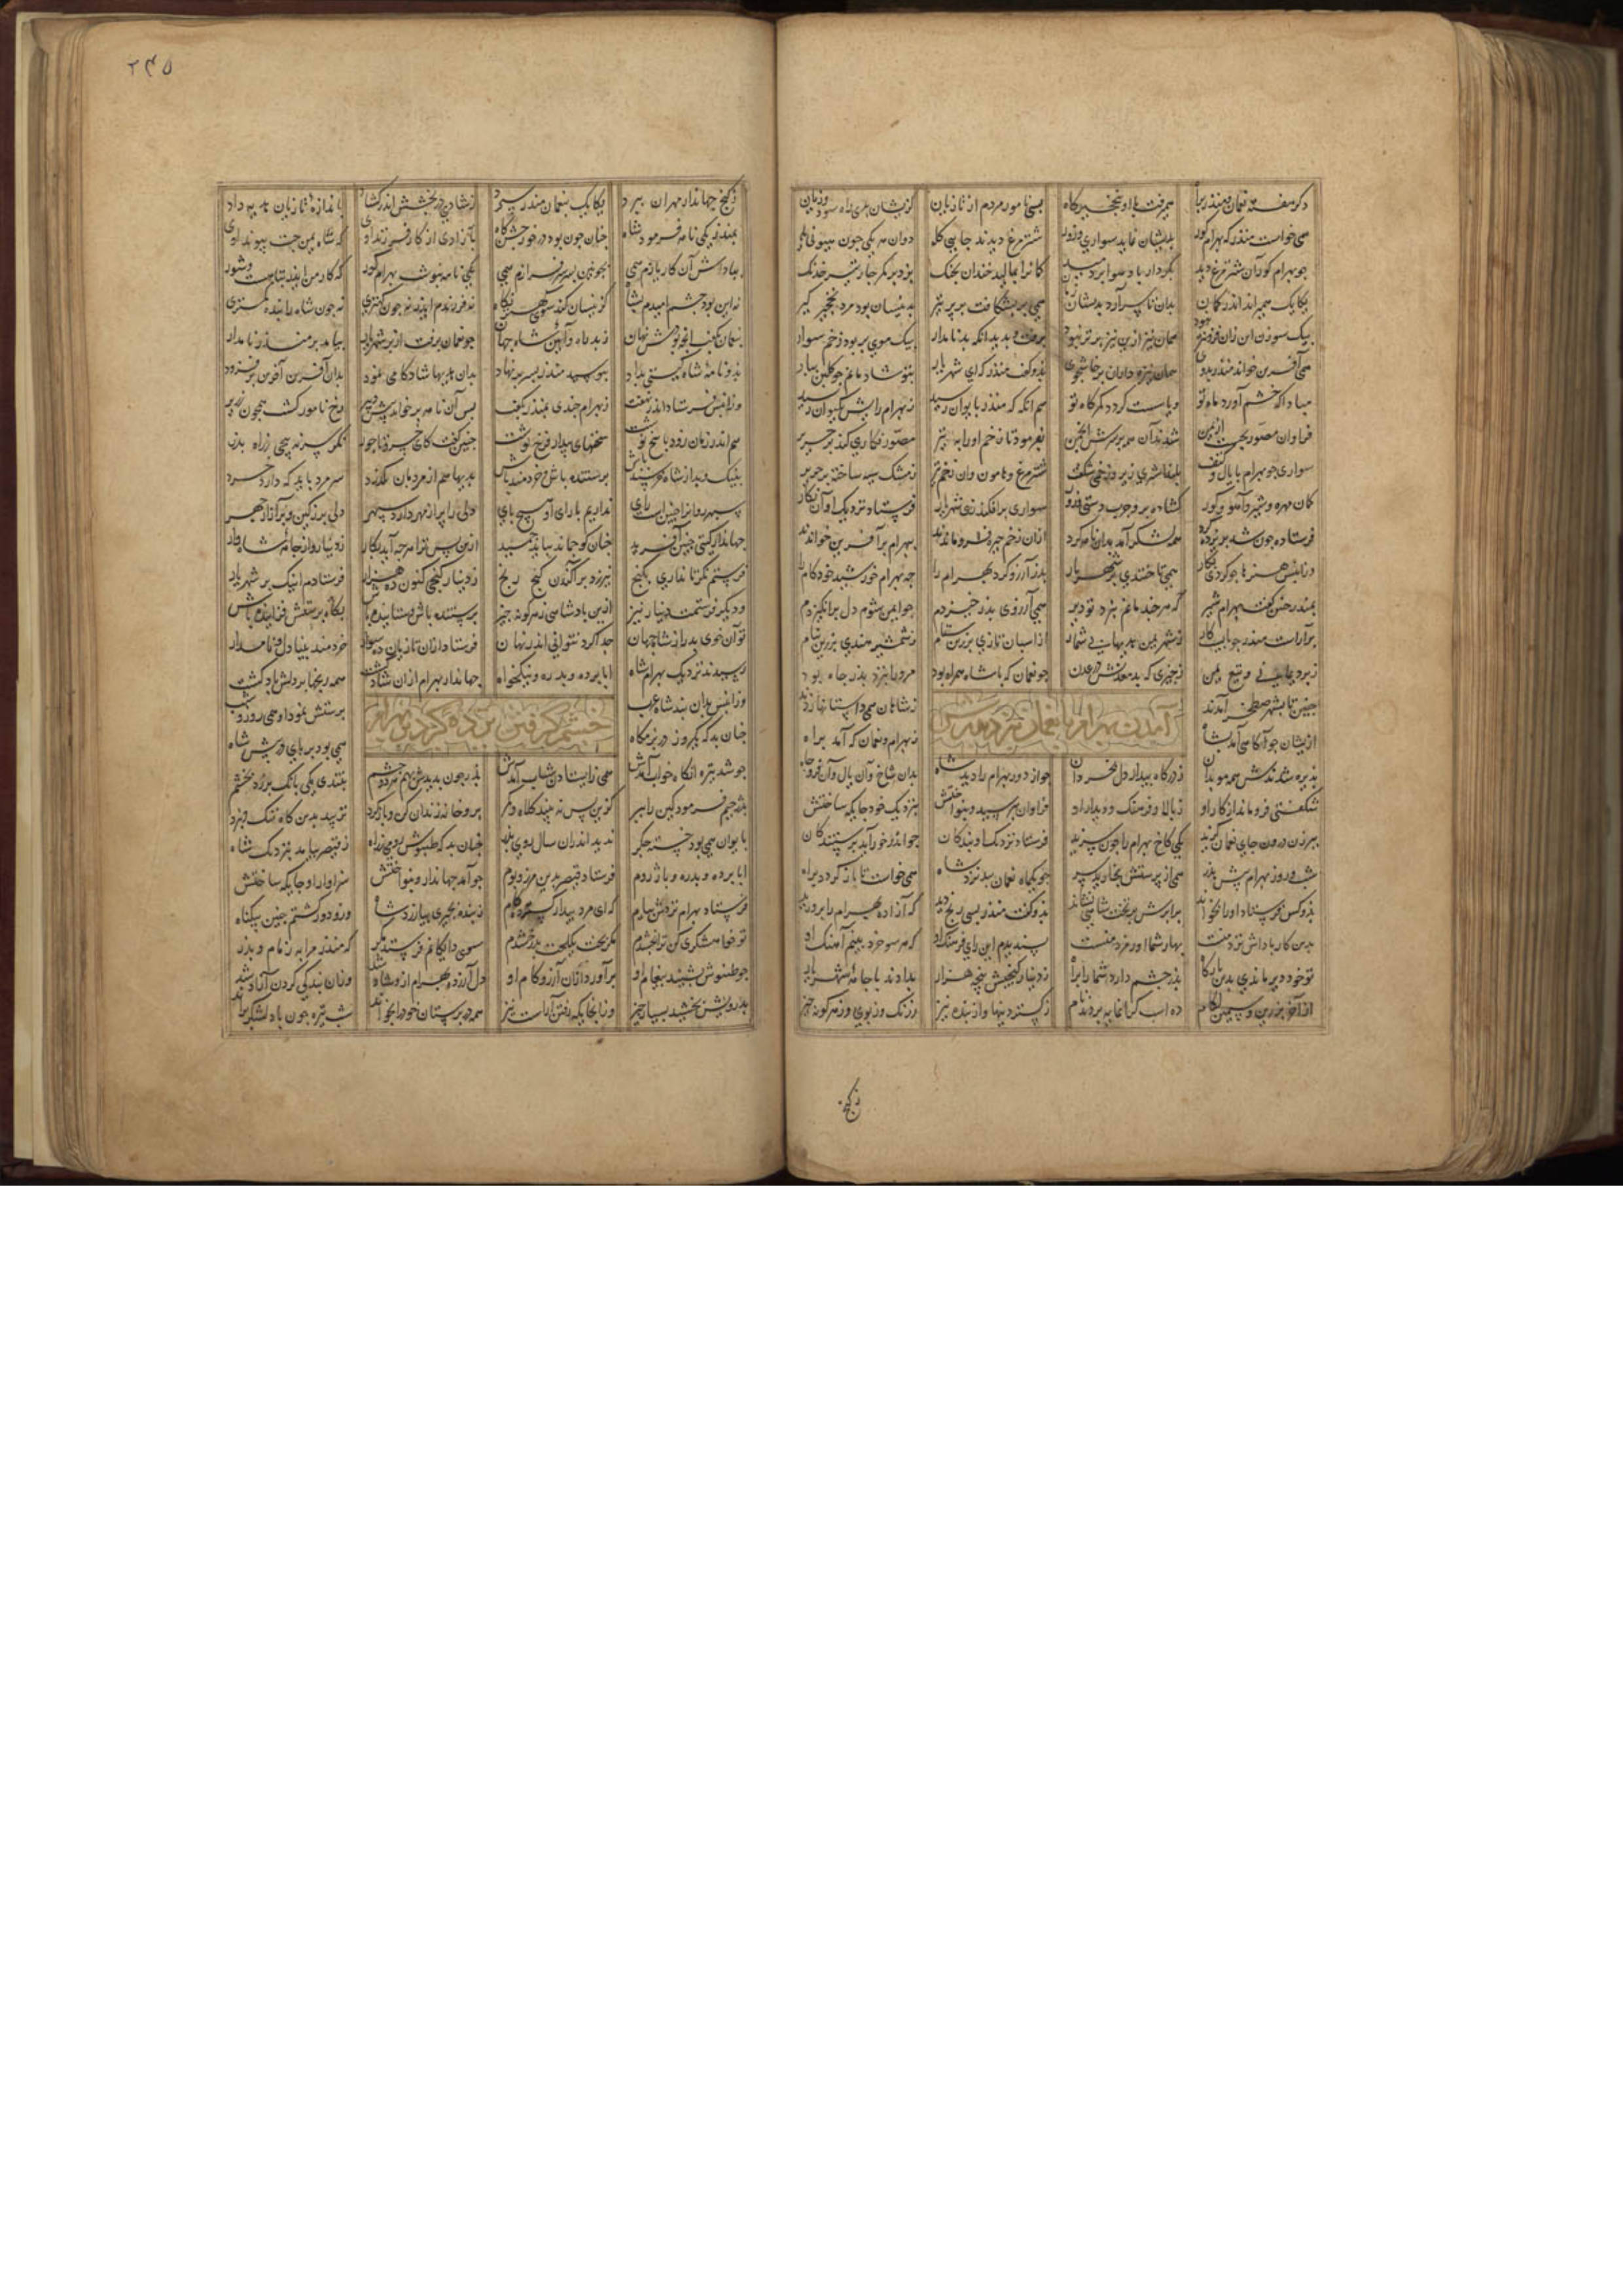 دکر هفته نعمان و منذر براه همی رفت با او بنخجیرکاه بسی نامور مردم از تازیان کزیشان بدی راه سود و زیان
همی خواست منذر که بهرام کور بدیشان نماید سواری و زور شترمرغ دیدند جایی کله دوان هر یکی چون هیونی یله
چو بهرام کور آن شترمرغ دید بکردار باد هوا بردمید کمانرا بمالید خندان بچنک بزد بر کمر چار تیر خدنک
یکایک همی راند اندر کمان بدان تا سرآرد بدیشان زمان همی بر شکافت پر بر پر تیر بدینسان بود مرد نخجیر کیر
بیک سوزن این زان فزونتر نبود همان تیر ازین تیر برتر نبود برفت و بدید آنکه بد نامدار بیک موی بر بود زخم سوار
همی آفرین خواند منذر بروی همان نیزه داران پرخاشجوی بدو کفت منذر که ای شهریار بتو شادمانم چو کلبن ببار
مبادا که خم آورد ماه تو وبا سست کردد کمرکاه تو هم انکه که منذر بایوان رسید ز بهرام رایش بکیوان رسید
فراوان مصور بجست از یمن شدند آن همه بر درش انجمن بفرمود تا زخم او را بتیر مصور نکاری کند بر حریر
سواری چو بهرام با یال و کتف بلند اشتری زیر و زخمی شکفت شترمرغ و هامون و آن زخم تیر ز مشک سیه ساخته بر حریر
کمان مهره و شیر و آهو و کور کشاده بر و چرب دستی و زور سواری برافکند زی شهریار فرستاد نزدیک او آن نکار
فرستاده چون شد بر یزدکرد همه لشکر آمد بدان نامه کرد ازان زخم خیره فرو ماندند ببهرام بر آفرین خواندند
وزانپس هنرها چو کردی بکار همی تاختندی بر شهریار پدر آرزو کرد بهرام را چه بهرام خورشید خودکام را
بمنذر چنین کفت بهرام شیر که هر چند مانم بنزد تو دیر همی آرزوی پدر خیزدم چو ایمن شوم دل برانکیزدم
برآراست منذر چو بایست کار ز شهر یمن هدیه بی شمار از اسبان تازی بزرین ستام ز شمشیر هندی بزرین نیام
ز برد یمانی و تیغ یمن ز چیزی که بد معدنش در عدن چو نعمان که با شاه همراه بود مر او را بنزد پدر جاه بود
چنین تا بشهر صطخر آمدند ز شاهان همی داستانها زدند
ازیشان چو آکاهی آمد بشاه ز بهرام و نعمان که آمد براه
آمدن بهرام با نعمان نزد پدرش
پذیره شدندش همه موبدان ز درکاه بیدار دل بخردان چو از دور بهرام را دید شاه بدان شاخ و آن یال و آن فر و جاه
شکفتی فرو ماند از کار او ز بالا و فرهنک و دیدار او فراوان بپرسید و بنواختش بنزدیک خود جایکه ساختش
ببرزن درون جای نعمان کزید یکی کاخ بهرام را چون سزید فرستاد نزدیک او بندکان چو اندر خور آید پرستندکان
شب و روز بهرام پیش پدر همی از پرستش نخارید سر چو یکماه نعمان ببد نزد شاه همی خواست تا باز کردد براه
بدو کس فرستاد او را بخواند برابرش بر تخت شاهی نشاند بدو کفت منذر بسی رنج دید که آزاده بهرام را پرورید
بدین کار پاداش نزد منست بهار شما اورمزد منست پسندیدم این رای فرهنک او که هر سو خرد بینم آهنک او
تو خود دیر ماندی بدین بارکاه پدر چشم دارد شما را براه ز دینار کنجیش پنجه هزار بدادند با جامه شهریار
از آخر بزرین و سیمین لکام ده اسب کرانمایه بردند نام ز کستردنیها و از بنده نیز ز رنک و ز بوی و ز هر کونه چیز
ز کنج
۲۴۵
ز کنج جهاندار مهران ببرد یکایک بنعمان منذر سپرد ز شادی در بخشش اندر کشاد باندازه تازیان هدیه داد
بمنذر یکی نامه فرمود شاه چنان چون بود در خور پیشکاه بآزادی از کار فرزند اوی که شاه یمن جست پیوند اوی
بپاداش آن کار یازم همی بچونین پسر سر فرازم همی یکی نامه بنوشت بهرام کور که کار من ایدر تباهست و شور
نه این بود چشم امیدم بشاه کزینسان کند سوی کهتر نکاه نه فرزندم ایدر نه چون کهتری نه چون شاه را بنده مهتری
بنعمان بکفت آنچه بودش نهان ز بد راه و آیین شاه جهان چو نعمان برفت از بر شهریار بیامد بر منذر نامدار
بدو نامه شاه کیتی بداد ببوسید منذر بسر بر نهاد بدان هدیها شادکامی نمود بدان آفرین آفرین بر فزود
وزانپس فرستاده اندر نهفت ز بهرام چندی بمنذر بکفت پس آن نامه بر خواند پیشش دبیر رخ نامور کشت همچون زریر
هم اندر زمان زود پاسخ نوشت سخنهای بیدار فرخ نوشت چنین کفت کای خسرو نامجوی نکر سر نه پیچی ز راه پدر
بنیک و بد از شاه خرسند باش پرستنده باش و خردمند باش بدیها هم از مردمان بکذرد سر مرد باید که دارد خرد
سپهر روانرا چنین است رای نداریم با رای او پیچ پای دلی را پر از مهر دارد سپهر دلی پر ز کین و پر آزار چهر
جهاندار کیتی چنین آفرید چنان کو چماند بباید چمید ازین پس ترا هر چه آید بکار ز دینار و از جامه شاهوار
فرستم نکر تا نداری برنج نیرزد پراکندن کنج رنج ز دینار کنجی کنون ده هزار فرستادم اینک بر شهریار
پرستنده باش و ستاینده باش بکاه پرستش فزاینده باش
و دیکر فرستمت دینار نیز ازین پادشاهی ز هر کونه چیز
تو آن خوی بد را ز شاه جهان جدا کرد نتوانی اندر نهان فرستاد از آن تازیان ده سوار خردمند و بینا دل و نامدار
رسیدند نزدیک بهرام شاه ابا برده و بدره و نیکخواه جهاندار بهرام ازان شاد کشت همه رنجها بر دلش باد کشت
وزانپس بدان پند شاه عرب پرستش نمود او همی روز و شب
چنان بد که یکروز در بزمکاه همی بود بر پای در پیش شاه
خشم کرفتن یزدکرد بر بهرام
چو شد تیره انکاه خواب آمدش همی ز ایستادن شتاب آمدش پدر چون بدیدش بهم بر دو چشم بتندی یکی بانک بر زد بخشم
بدژخیم فرمود کین را ببر کزین پس نه بیند کلاه و کمر برو خانه زندان کن و باز کرد نزیبد بدین کاه ننک و نبرد
بایوان همی بود خسته جکر ندید اندران سال روی پدر چنان بد که طینوش رومی ز راه ز قیصر بیامد بنزدیک شاه
ابا برده و بدره و باژ روم فرستاد قیصر بدین مرز و بوم چو آمد جهاندار بنواختش سزاوار او جایکه ساختش
فرستاد بهرام نزدش پیام که ای مرد بیدار کسترده کام ز بنده بچیزی بیازرد شاه وزو دور کشتم چنین بیکناه
تو خواهشکری کن ترا بخشدم مکر بخت بیکبخت بدرخشدم سوی دایکانم فرستد مکر که منذر مرا به ز مام و پدر
چو طینوش بشنید پیغام او برآورد ازان آرزو کام او دل آزرده بهرام ازو شاد شد وزان بندکی کردن آزاد شد
بدرویش بخشید بسیار چیز وزانجایکه رفتن آراست نیز همه زیر دستان خود را بخواند شب تیره چون باد لشکر براند